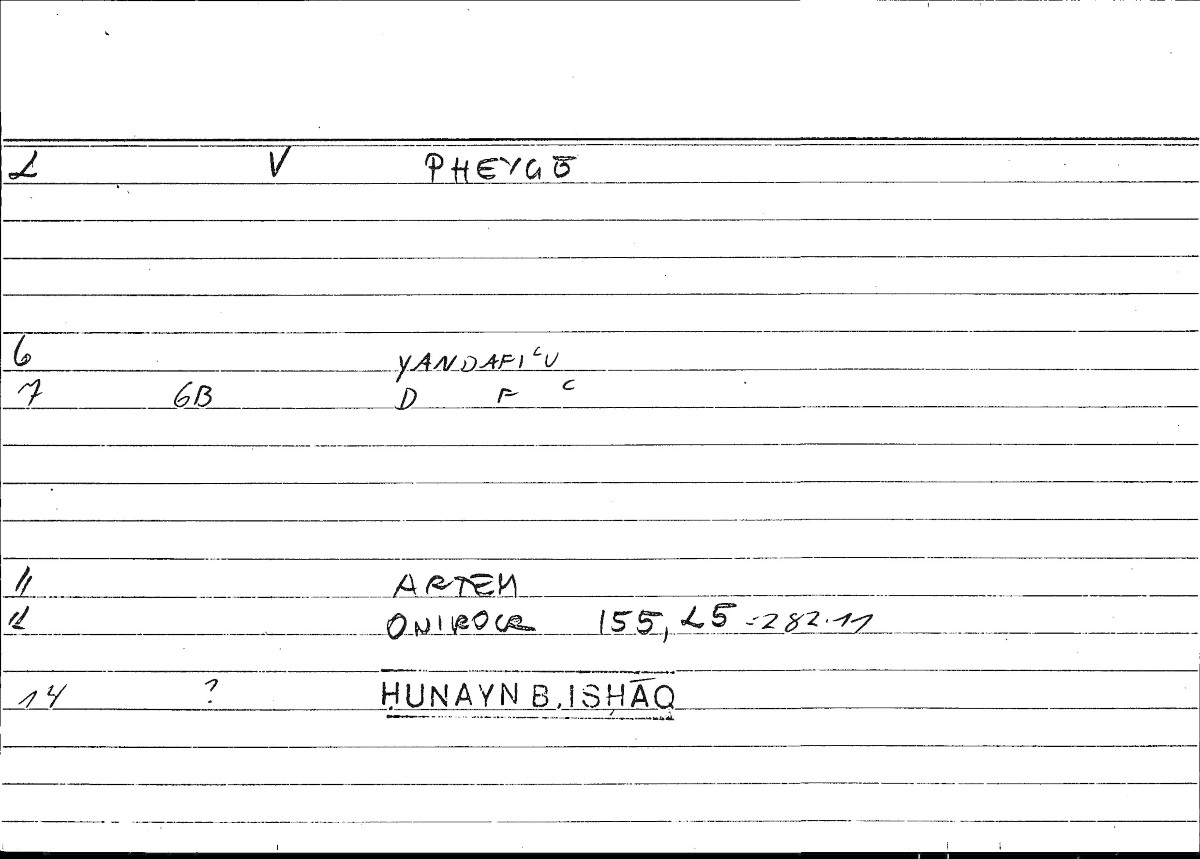 2 V PHEYGŌ
6 YANDAFIʿU
7 6B D F ʿ
11 ARTEM
12 ONIROCR 155, 25 = 282.11
14 ? ḤUNAYN B. ISḤĀQ